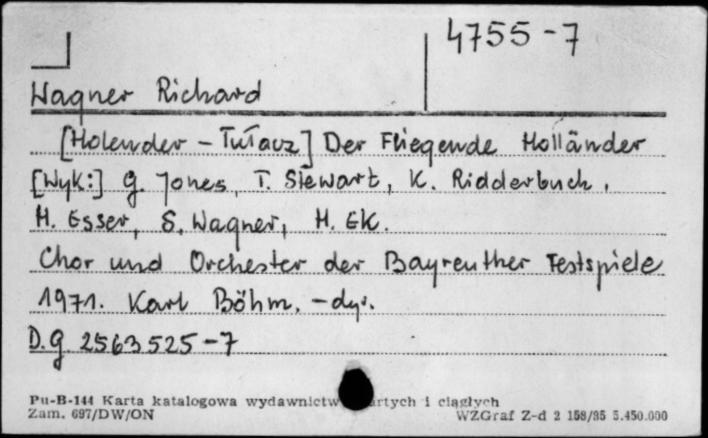 4755-7
Wagner Richard
[Holender - Tułacz] Der Fliegende Holländer
[Wyk:] G. Jones, T. Stewart, K. Ridderbuch,
H. Esser, S. Wagner, H. Ek.
Chor und Orchester der Bayreuther Festspiele
1971. Karl Böhm. -dyr.
D.g. 2563525-7
Pu-B-144 Karta katalogowa wydawnictw i ciągłych
Zam. 697/DW/ON WZGraf Z-d 2 158/85 5.450.000